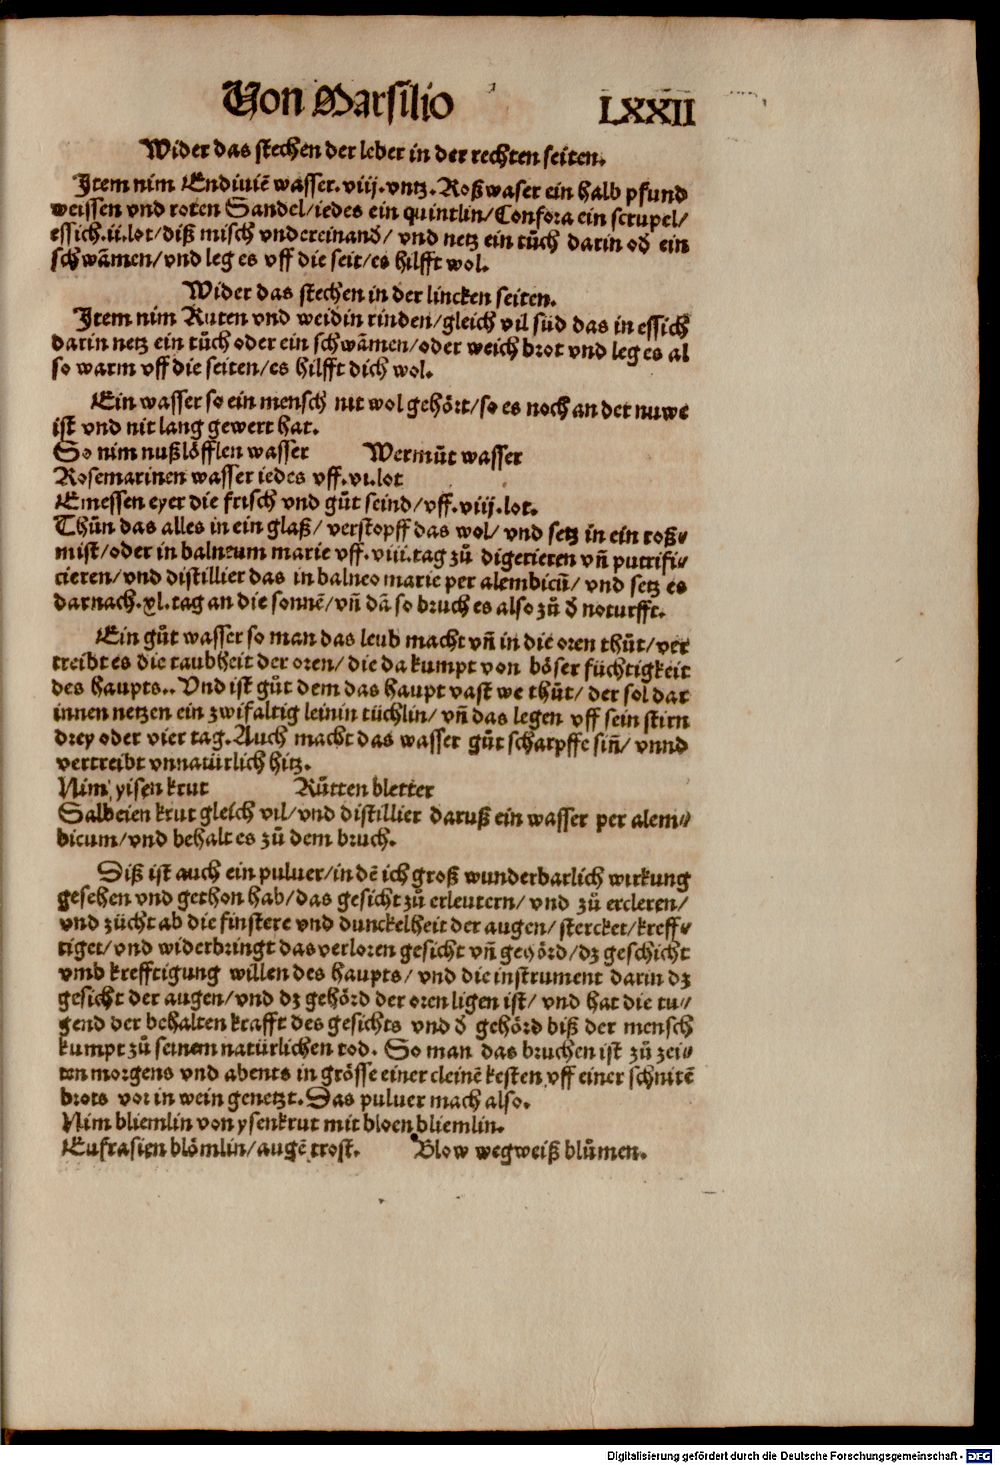 Von Marsilio LXXII
Wider das stechen der leber in der rechten seiten.
Item nim Endiuiē wasser.viij.vntz.Roßwaser ein halb pfund
weissen vnd roten Sandel/iedes ein quintlin/Confora ein scrupel/
essich.ii.lot/diß misch vndereinand̄/ vnd netz ein tůch darin od̄ ein
schwāmen/vnd leg es vff die seit/es hilfft wol.
Wider das stechen in der lincken seiten.
Item nim Ruten vnd weidin rinden/gleich vil süd das in essich
darin netz ein tůch oder ein schwāmen/oder weich brot vnd leg es al
so warm vff die seiten/es hilfft dich wol.
Ein wasser so ein mensch nit wol gehört/so es noch an der nuwe
ist vnd nit lang gewert hat.
So nim nußlöfflen wasser Wermůt wasser
Rosemarinen wasser iedes vff.vi.lot
Emessen eyer die frisch vnd gůt seind/vff.viij.lot.
Thůn das alles in ein glaß/ verstopff das wol/ vnd setz in ein roß⸗
mist/oder in balneum marie vff.viii.tag zů digerieren vñ putrifi⸗
cieren/vnd distillier das in balneo marie per alembicū/ vnd setz es
darnach.xl.tag an die sonnē/vñ dā so bruch es also zů d̄ noturfft.
Ein gůt wasser so man das leub macht vñ in die oren thůt/ver
treibt es die taubheit der oren/ die da kumpt von böser füchtigkeit
des haupts.. Vnd ist gůt dem das haupt vast we thůt/ der sol dar
innen netzen ein zwifaltig leinin tüchlin/ vñ das legen vff sein stirn
drey oder vier tag.Auch macht das wasser gůt scharpffe siñ/ vnnd
vertreibt vnnatürlich hitz.
Nim yisen krut Růtten bletter
Salbeien krut gleich vil/vnd distillier daruß ein wasser per alem⸗
bicum/vnd behalt es zů dem bruch.
Diß ist auch ein puluer/in dē ich groß wunderbarlich wirkung
gesehen vnd gethon hab/das gesicht zů erleutern/ vnd zů ercleren/
vnd zücht ab die finstere vnd dunckelheit der augen/ stercket/kreff⸗
tiget/vnd widerbringt das verloren gesicht vñ gehörd/dz geschicht
vmb krefftigung willen des haupts/ vnd die instrument darin dz
gesicht der augen/vnd dz gehörd der oren ligen ist/ vnd hat die tu⸗
gend der behalten krafft des gesichts vnd d̄ gehörd biß der mensch
kumpt zů seinem natürlichen tod. So man das bruchen ist zů zei⸗
ten morgens vnd abents in grösse einer cleinē kesten vff einer schnitē
brots vor in wein genetzt.Das puluer mach also.
Nim bliemlin von ysenkrut mit bloen bliemlin.
Eufrasien blömlin/augē trost. Blow wegweiß blůmen.
Digitalisierung gefördert durch die Deutsche Forschungsgemeinschaft - DFG